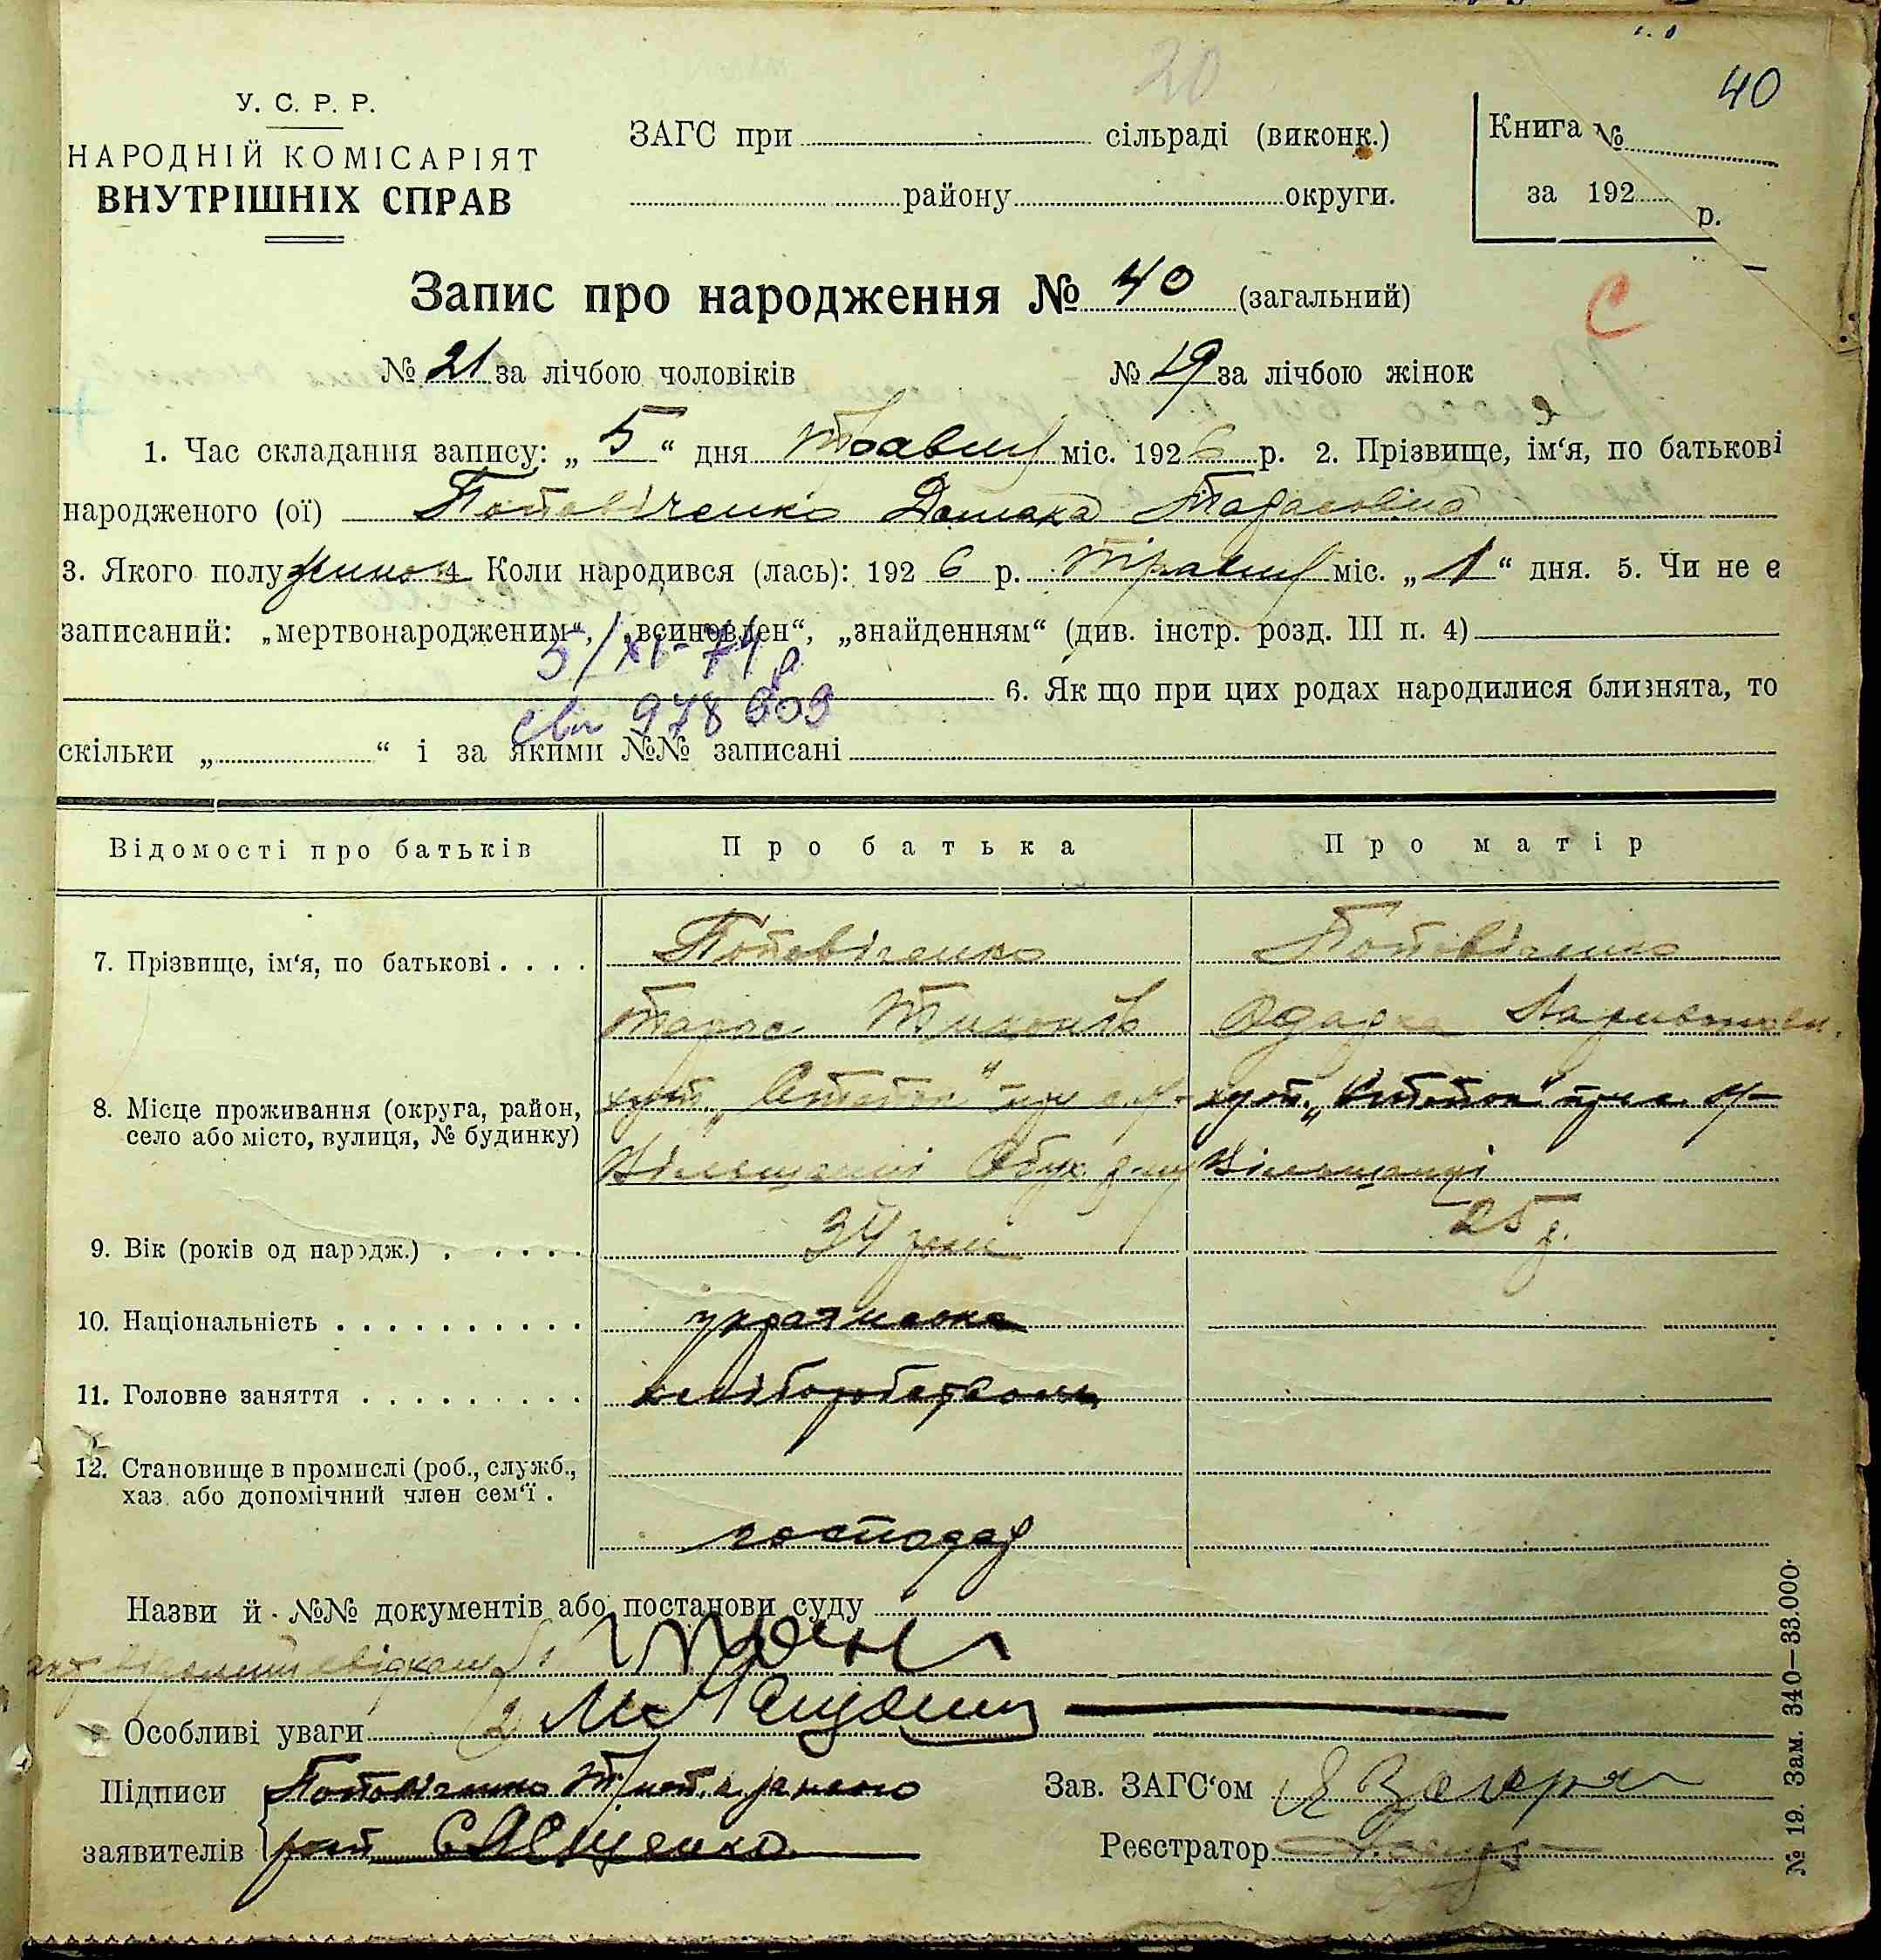 40
20
У. С. Р. Р.
НАРОДНІЙ КОМІСАРІЯТ
ВНУТРІШНІХ СПРАВ
ЗАГС при сільраді (виконк.)
району округи.
Книга №
за 192 р.
Запис про народження № 40 (загальний)
С
№ 21 за лічбою чоловіків № 19 за лічбою жінок
1. Час складання запису: „ 5 “ дня Травня міс. 1926 р. 2. Прізвище, ім‘я, по батькові
народженого (ої) Поповіченко Домаха Тарасовна
3. Якого полу жіночо 4. Коли народився (лась): 192 6 р. травня міс. „ 1 “ дня. 5. Чи не є
записаний: „мертвонародженим“, „всиновлен“, „знайденням“ (див. інстр. розд. III п. 4)
5/XI-74 р
6. Як що при цих родах народилися близнята, то
свн 978609
скільки „ “ і за якими №№ записані
Відомості про батьків Про батька Про матір
7. Прізвище, ім‘я, по батькові . . . . Поповіченко Поповіченко
Тарас Тихонов Одарка
8. Місце проживання (округа, район, хут. „Степок“ при с. хут. „Степок“ при с.
село або місто, вулиця, № будинку) Вільщанці Обух. р-ну Вільщанці
9. Вік (років од народж.) . . . . . 34 роки 25 р.
10. Національність . . . . . . . . . . українська
11. Головне заняття . . . . . . . . . хліборобством
12. Становище в промислі (роб., служб.,
хаз. або допомічний член сем‘ї .
господар
Назви й №№ документів або постанови суду
Особливі уваги 2
Підписи Поповіченко Т неграмотного
заявителів рост ЄЯЄщенко
Зав. ЗАГС‘ом
Реєстратор
№ 19. Зам. 340—33.000.